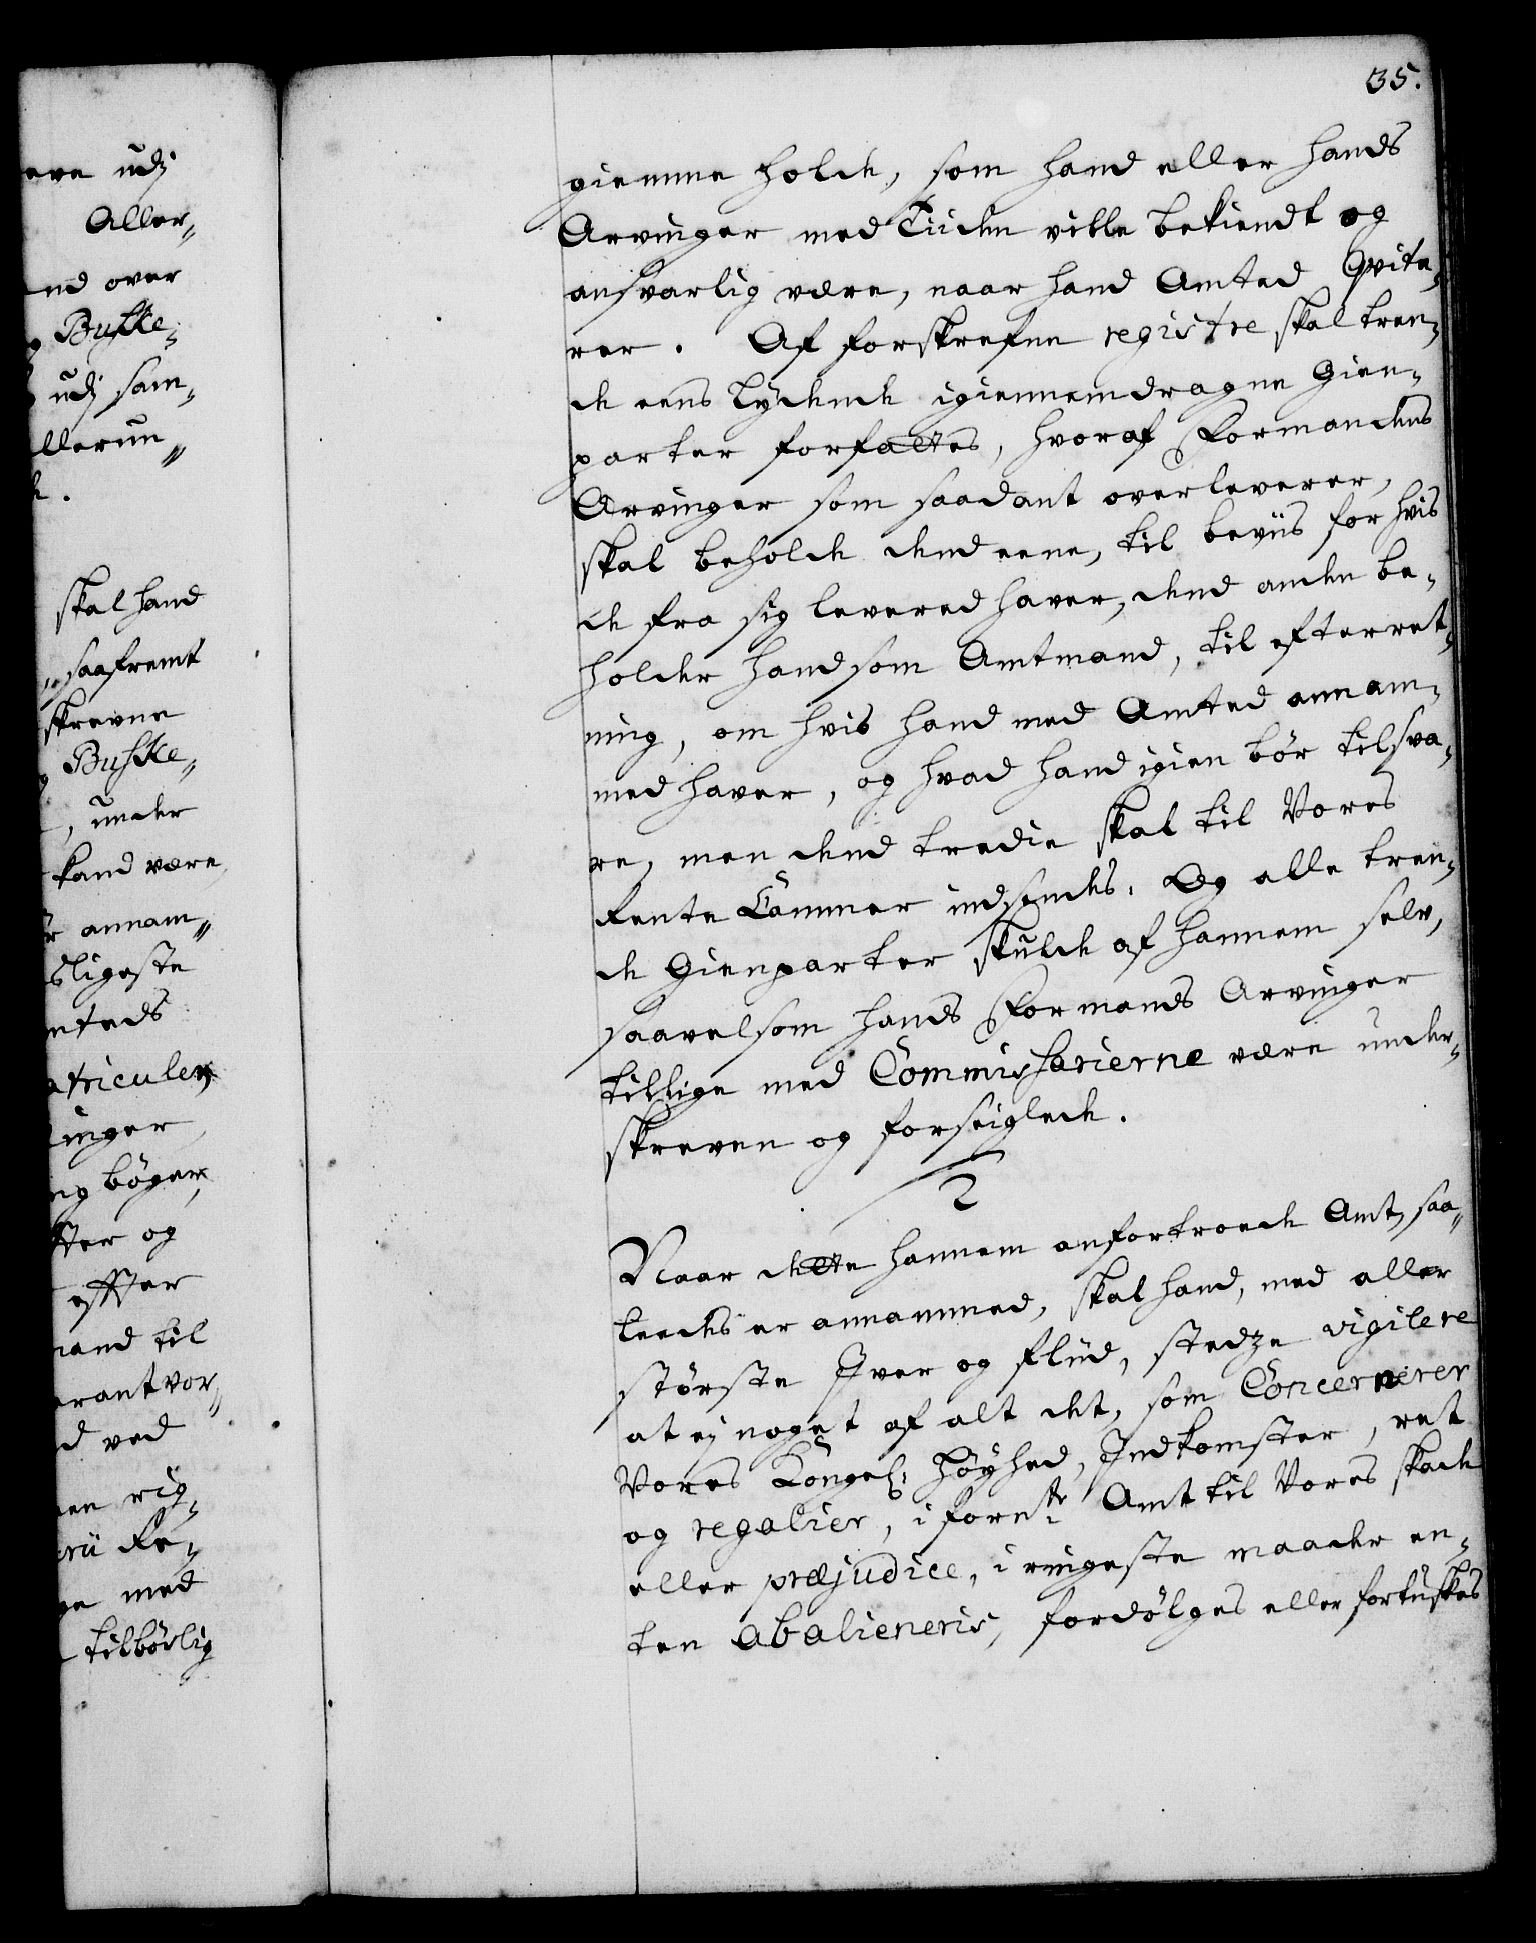 eve udj
Aller„
nd over
Buskke„
udj sam„
llerun„
skal hand
saafremt
skrevne
Buskke„
, under
kand være,
annam„
sligeste
mteds
atriculer,
inger
ng bøger,
fter og
efter
mand til
rant vor„
d ved
en rig„
rii Re„
ge med
tilbørlig
35.
giemme holde, som hand eller hands
Arvinger med Tiiden ville bekiendt og
ansvarlig være, naar hand Amted Qvite„
rer. Af forskrefne registre skal tren„
de eens Lydende igiennemdragne Gien„
parter forfattes, hvoraf Formandens
Arvinger som saadant overleverer,
skal beholde dend eene, til beviis for hvis
de fra sig levered haver, dend anden be„
holder hand som Amtmand, til efterret„
ning, om hvis hand med Amted annam„
med haver, og hvad hand igien bør tilsva„
re, men dend tredie skal til Vores
Rente Cammer indsendes. Og alle tren„
de Gienparter skulde af hannem selv,
saavelsom hands Formands Arvinger
tillige med Commissarierne være under„
skreven og forseiglede.
2
Naar dette hannem anfortroede Amt, saa„
leedes er annammed, skal hand, med aller
største Iver og fliid, stedze vigilere
at ej noget af alt det, som Concernerer
Vores Kongel: Høyhed, Indkomster, ret
og regalier, i fornte Amt til Vores skade
eller præjudice, i ringeste maader en„
ten abalieneris, fordølges eller fortuskes